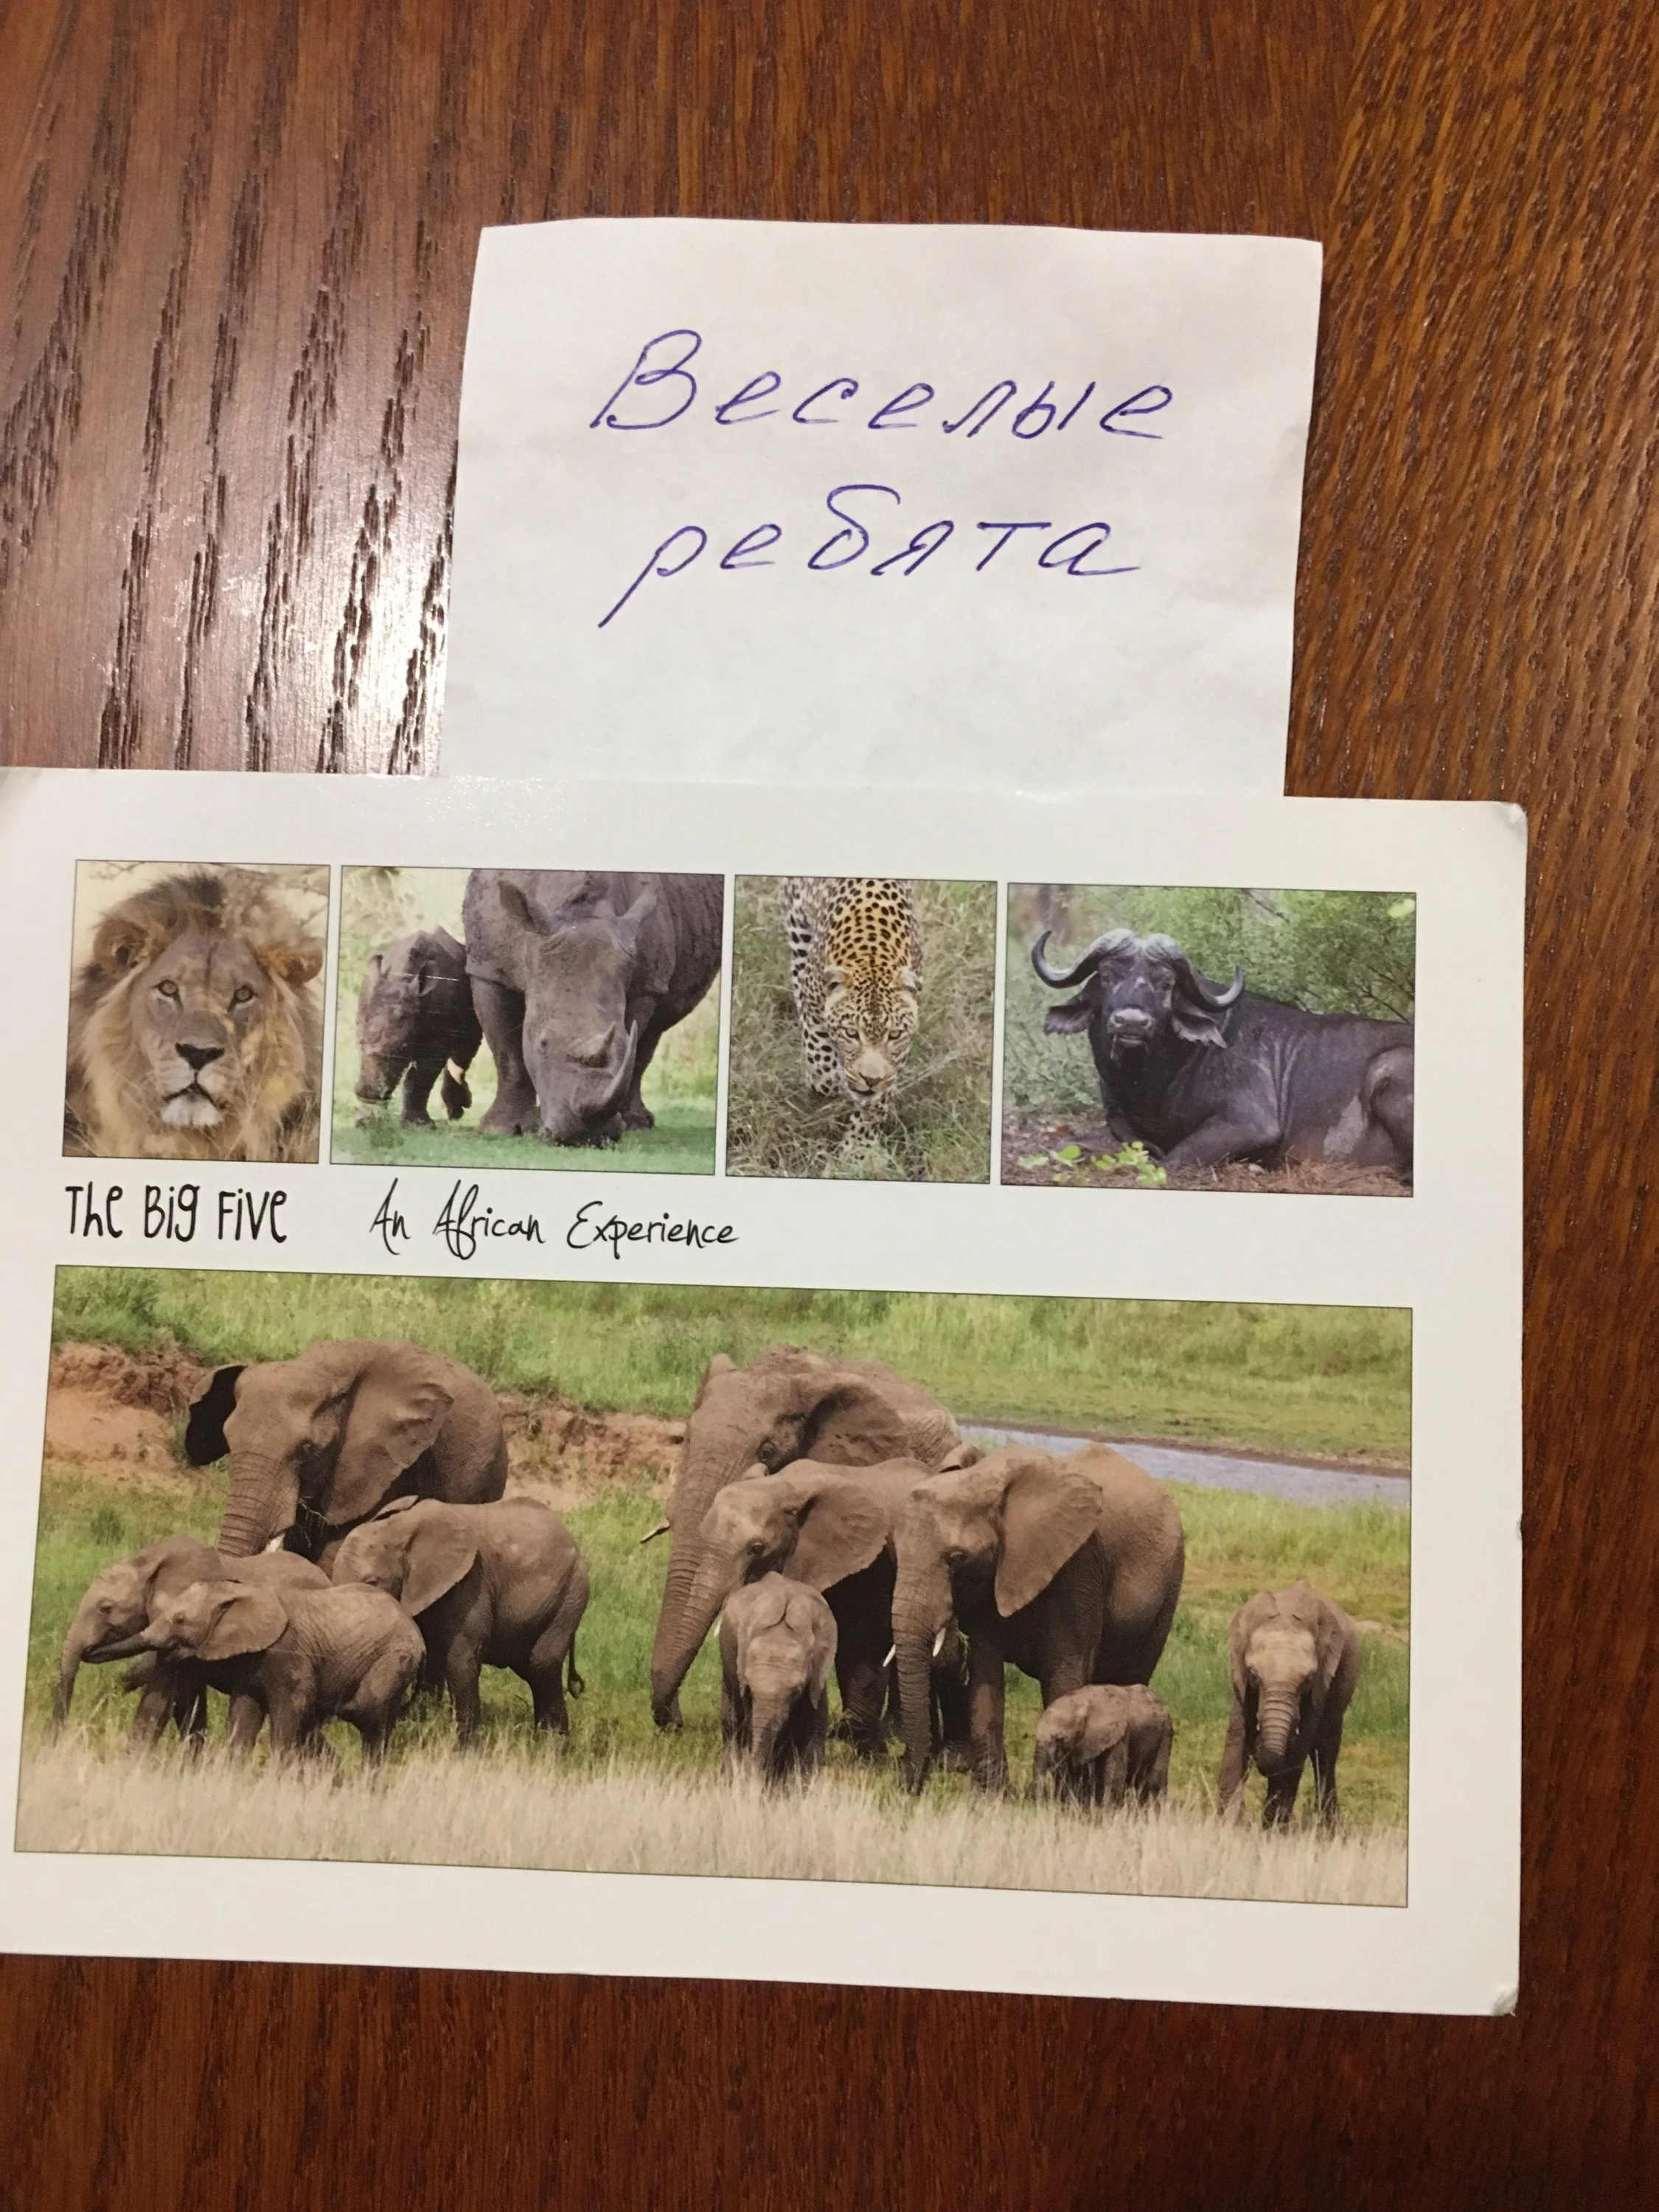 Веселые
ребята
The Big Five An African Experience